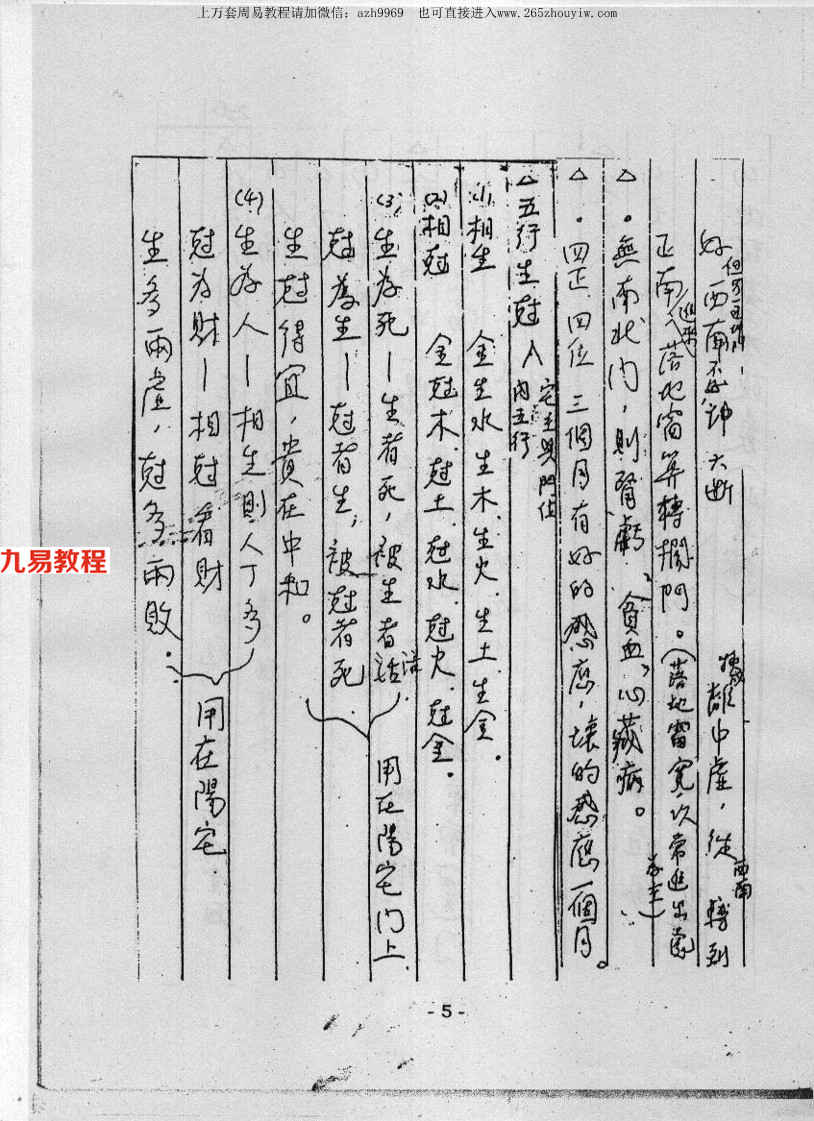 上万套周易教程请加微信：azh9969 也可直接进入www.265zhouyiw.com
好西南不好， 大断 離中虛，從西南轉到
正南，落地窗算轉欄門。（落地窗寬，以常進出 為主）
△。無南北門，則腎虧、貧血、心藏病。
△．四正四位 三個月有好的感應，壞的感應一個月。
△五行生尅 宅主與門位 內五行
(1)相生 金生水．生木．生火．生土．生金．
(2)相尅 金尅木．尅土．尅水．尅火．尅金。
(3)生為死—生者死，被生者活 用在陽宅門上．
尅為生—尅者生，被尅者死
生尅得宜，貴在中和。
(4)生為人—相生則人丁多
尅為財—相尅看財 用在陽宅．
生多兩虛，尅多兩敗．
九易教程
- 5 -